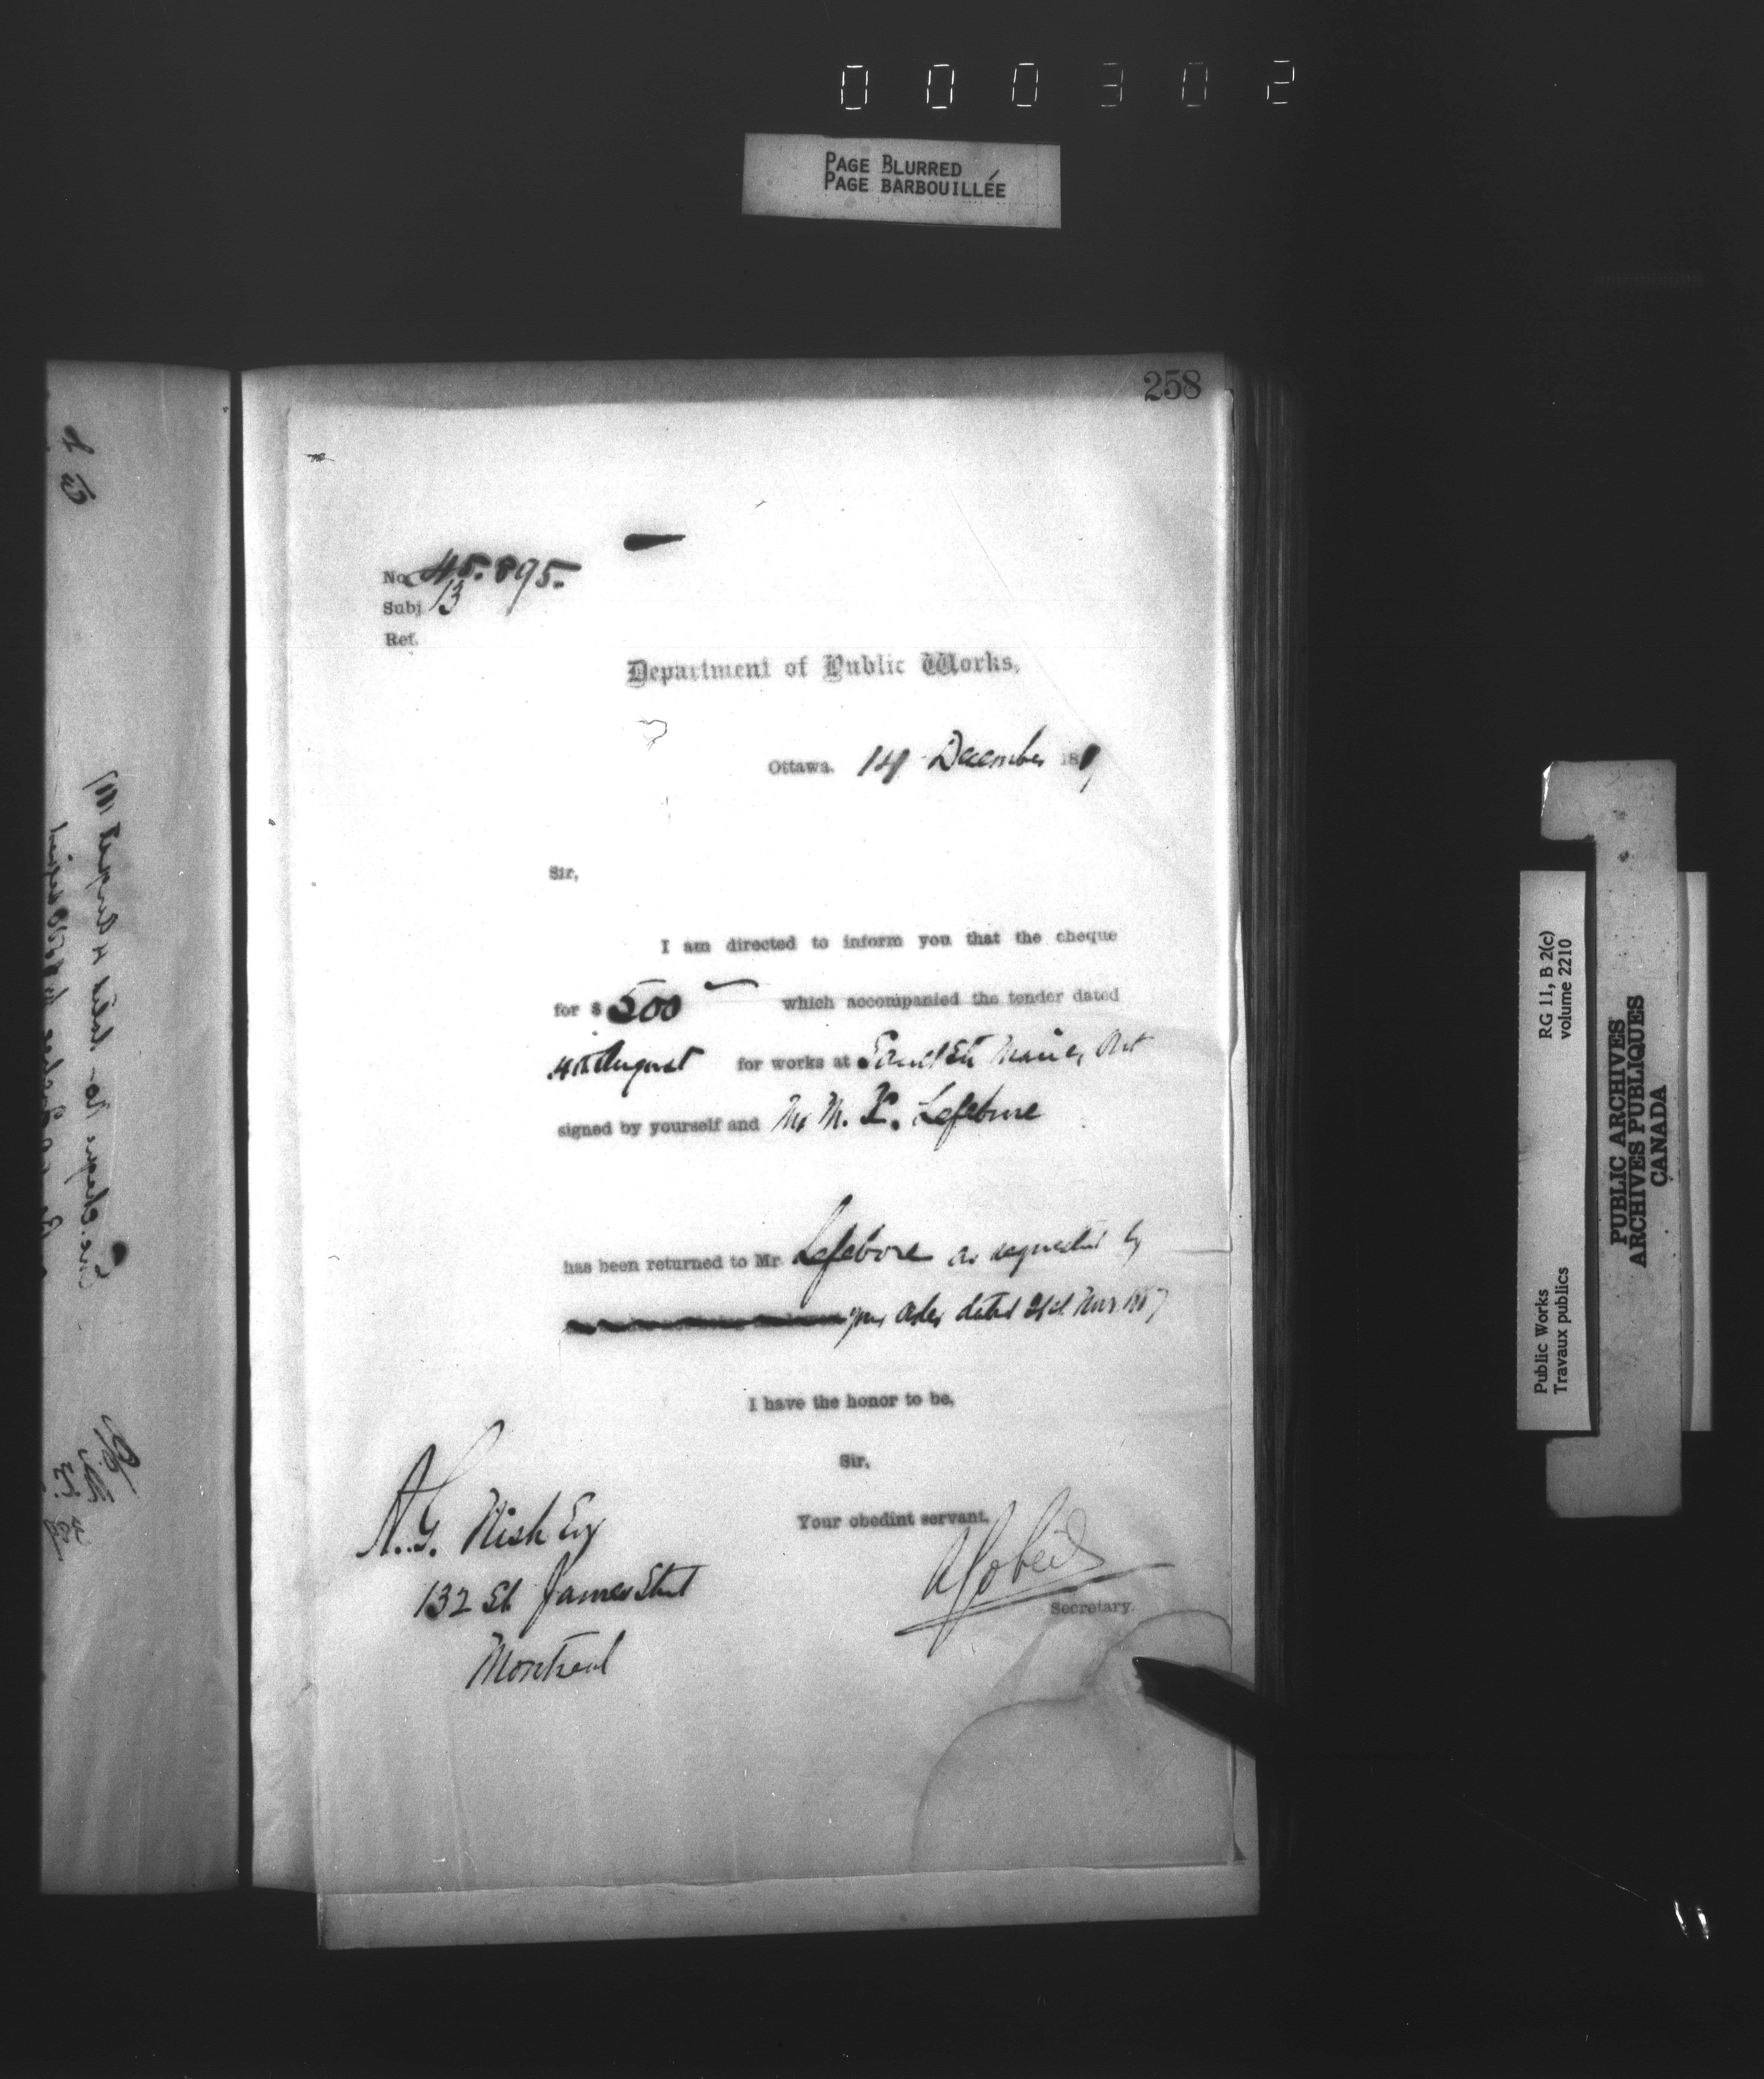 000302
PAGE BLURRED
PAGE BARBOUILLÉE
258
No. 45.895.
Subj. 13
Ref.
Department of Public Works,
Ottawa. 14 December 188
Sir,
I am directed to inform you that the cheque
for $ 500 which accompanied the tender dated
4th August for works at Sault Ste Marie, Ont
signed by yourself and Mr M. P. Lefebvre
has been returned to Mr Lefebvre as requested by
your order dated 21st Nov 1887
I have the honor to be,
Sir,
Your obedint servant,
A Gobeil
Secretary.
A. G. Nish Esq
132 St. James Street
Montreal
RG 11, B 2(c)
volume 2210
Public Works
Travaux publics
PUBLIC ARCHIVES
ARCHIVES PUBLIQUES
CANADA